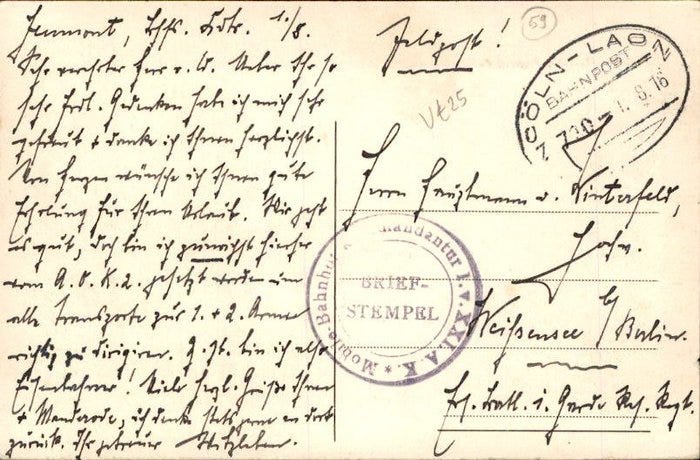 Jeumont, Bhfs. Kdtr. 1./8.
Sehr verehrter Herr v. W. Ueber Ihr so
sehr frdl. Gedenken habe ich mich sehr
gefreut + danke ich Ihnen herzlichst.
Von Herzen wünsche ich Ihnen gute
Erholung für Ihren Urlaub. Mir geht
es gut, doch bin ich zunächst hierher
vom A.O.K.2. gesetzt worden um
alle Transporte zur 1. + 2. Armee
richtig zu dirigieren. bin ich also
Eisenbahner! Viele herzl. Grüße Ihnen
+ Wanderode, ich denke stets gern an dort
zurück. Ihr getreuer Witzleben.
Feldpost!
59
Vt25
CÖLN-LAON
BAHNPOST
Z 1.8.16
Herrn Hauptmann v. Winterfeld,
Hochw.
Weißensee b/Berlin.
Ers. Batl. i. Garde Res. Regt.
Mobile-Bahnhofs-Kommandantur 1. v. XXI A.K. *
BRIEF-
STEMPEL